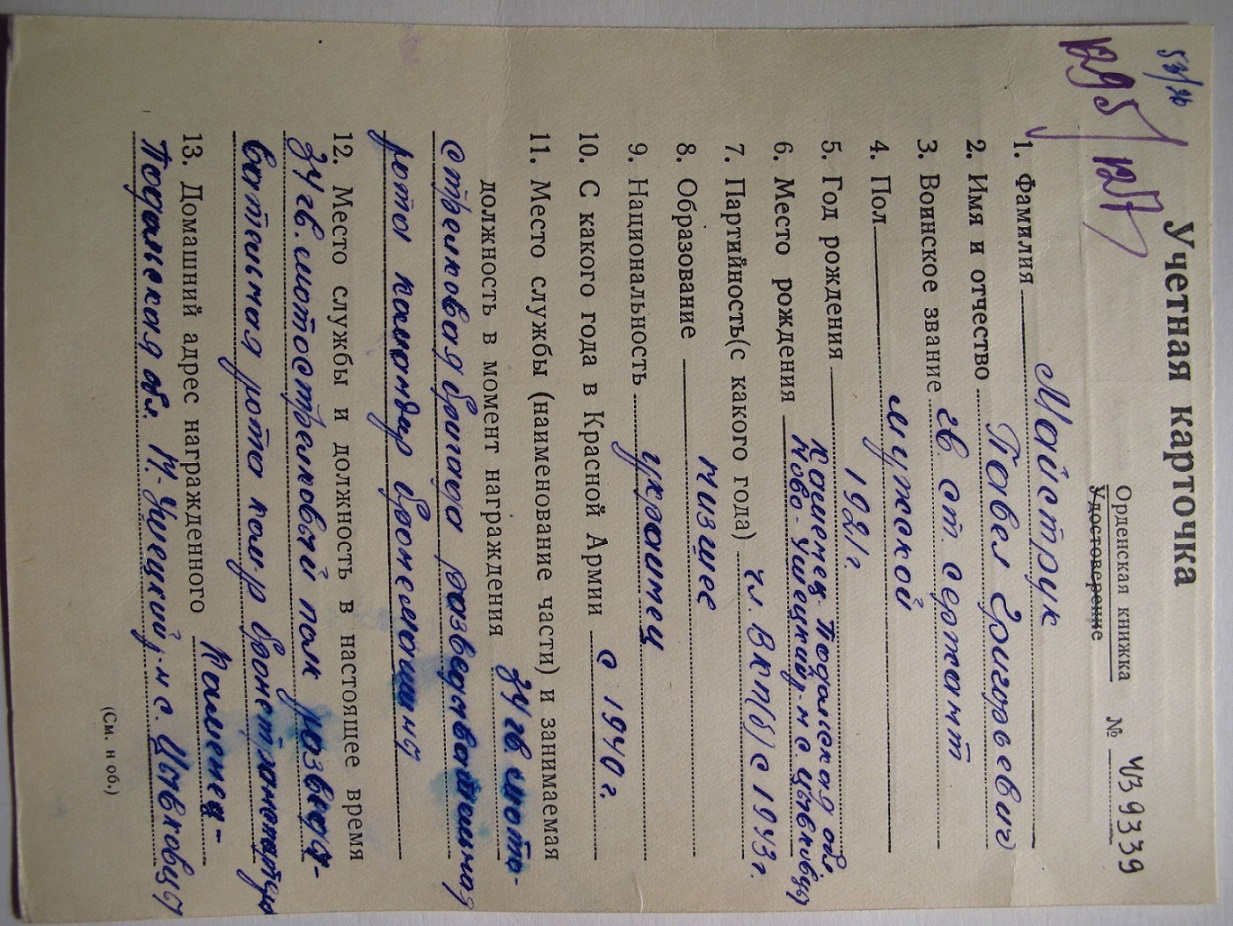 53/96
1295/127
Учетная карточка
Орденская книжка
Удостоверение № Ч39339
1. Фамилия Майструк
2. Имя и отчество Павел Григорьевич
3. Воинское звание гв ст сержант
4. Пол мужской
5. Год рождения 1921 г.
6. Место рождения Каменец-Подольская обл.
Ново-Ушецкий р-н с Цывковцы
7. Партийность(с какого года) чл. ВКП(б) с 1943 г.
8. Образование низшее
9. Национальность украинец
10. С какого года в Красной Армии с 1940 г.
11. Место службы (наименование части) и занимаемая
должность в момент награждения 34 гв. мото-
стрелковая бригада разведывательная
рота командир бронемашины
12. Место службы и должность в настоящее время
34 гв. мотострелковый полк разведы-
вательная рота ком-р
13. Домашний адрес награжденного Каменец-
Подольская обл. Н-Ушецкий р-н с. Цывковцы
(См. н об.)